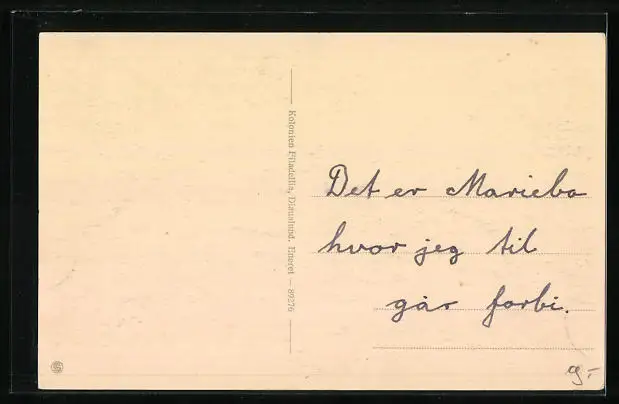 Kolonien Filadelfia, Dianalund. Eneret — 89276
Det er Mariebo
hvor jeg til
går forbi.
9,-